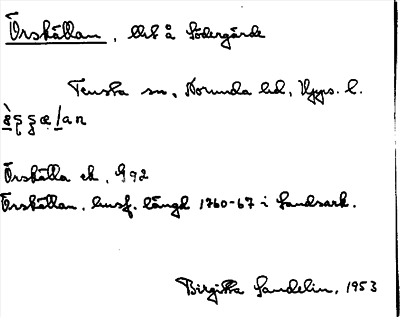 Örskällan, lht å Södergärde
Tensta sn, Norunda hd, Upps. l.
Örskälla ek, G 92
Örskällan, husf. längd 1760-67 i Landsark.
Birgitta Sandelin, 1953